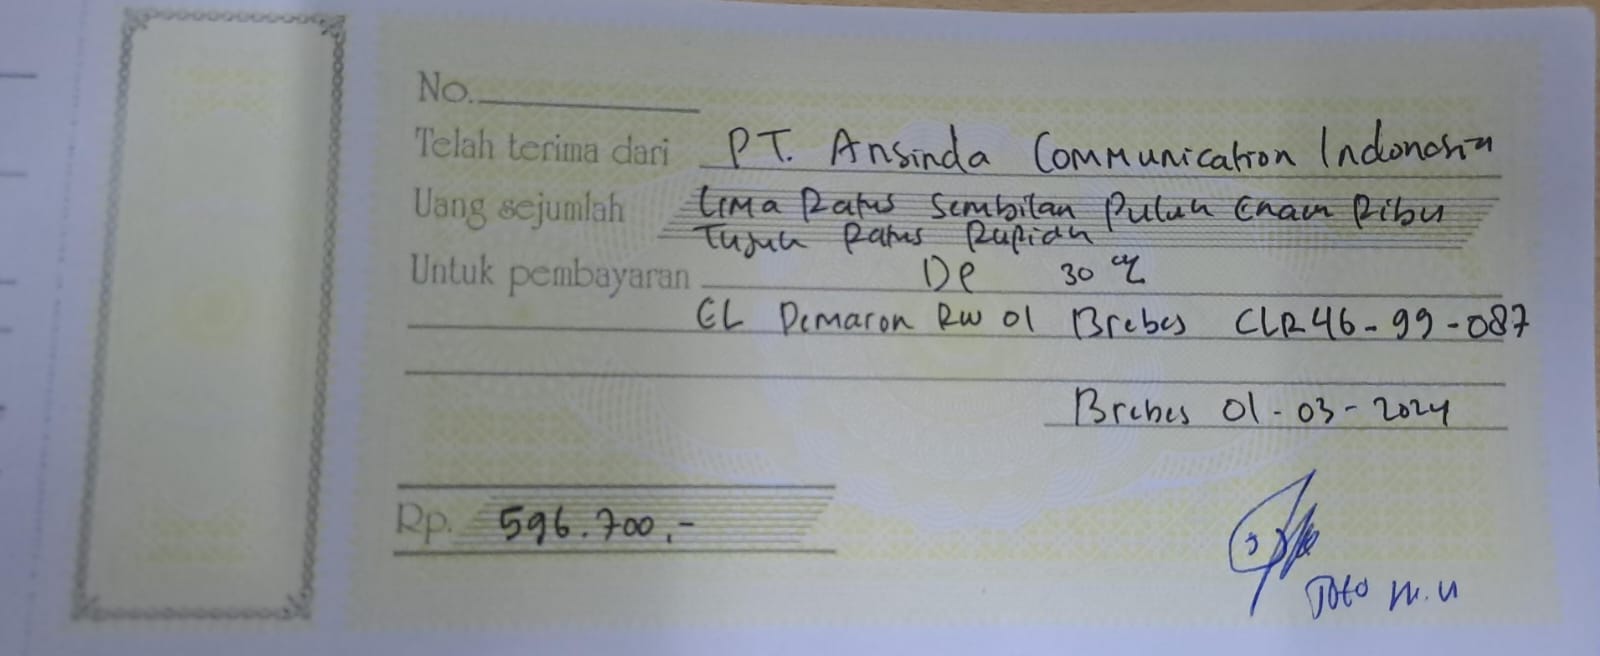 No.
Telah terima dari PT. Ansinda Communication Indonesia
Uang sejumlah Lima Ratus Sembilan Puluh Enam Ribu
Tujuh Ratus Rupiah
Untuk pembayaran DP 30 %
EL Pemaron RW 01 Brebes CLR46-99-087
Brebes 01-03-2024
Rp. 596.700,-
Toto M.U